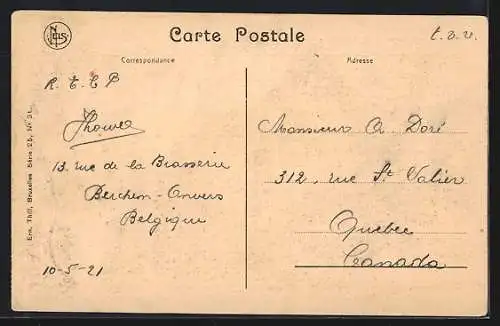 Carte Postale
t.s.v.
Correspondance
Adresse
R. t. C. P
13. rue de la Brasserie
Berchem-Anvers
Belgique
10-5-21
Monsieur A. Doré
312, rue St Valier
Québec
Canada
Ern. Thill, Bruxelles Série 25, No 31.